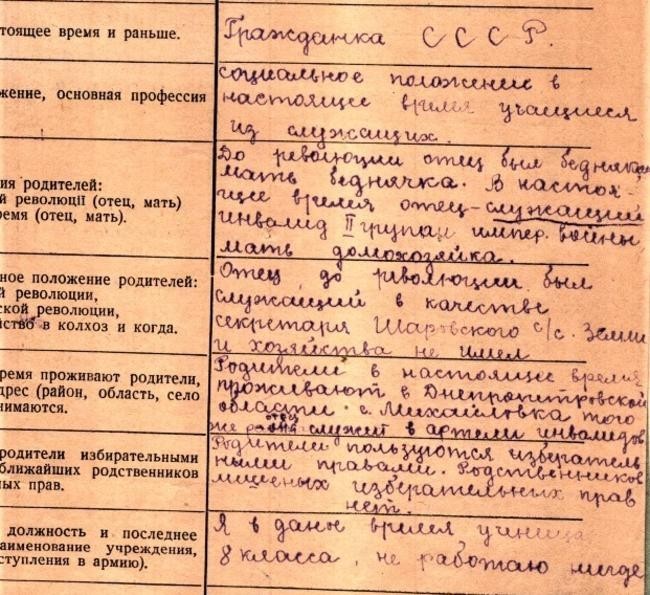 тоящее время и раньше.
Гражданка С С С Р.
жение, основная профессия
социальное положение в
настоящее время учащиеся
из служащих.
ия родителей:
й революції (отец, мать)
ремя (отец, мать).
До революции отец был бедняк
мать беднячка. В настоя-
щее время отец-служащий
инвалид II групаи импер. войны,
мать домохозяйка.
ное положение родителей:
й революции,
ской революции,
йство в колхоз и когда.
Отец до революции был
служащий в качестве
секретаря Шаровского с/с. Земли
и хозяйства не имел
ремя проживают родители,
дрес (район, область, село
нимаются.
Родители в настоящее время
проживают в Днепропетровской
области с. Михайловка того
же отец служит в артели инвалидов
родители избирательными
ближайших родственников
ных прав.
Родители пользуются избератель
ными правами. Родственников
лишеных изберательных прав
нет.
должность и последнее
аименование учреждения,
ступления в армию).
Я в даное время ученица
8 класса, не работаю нигде